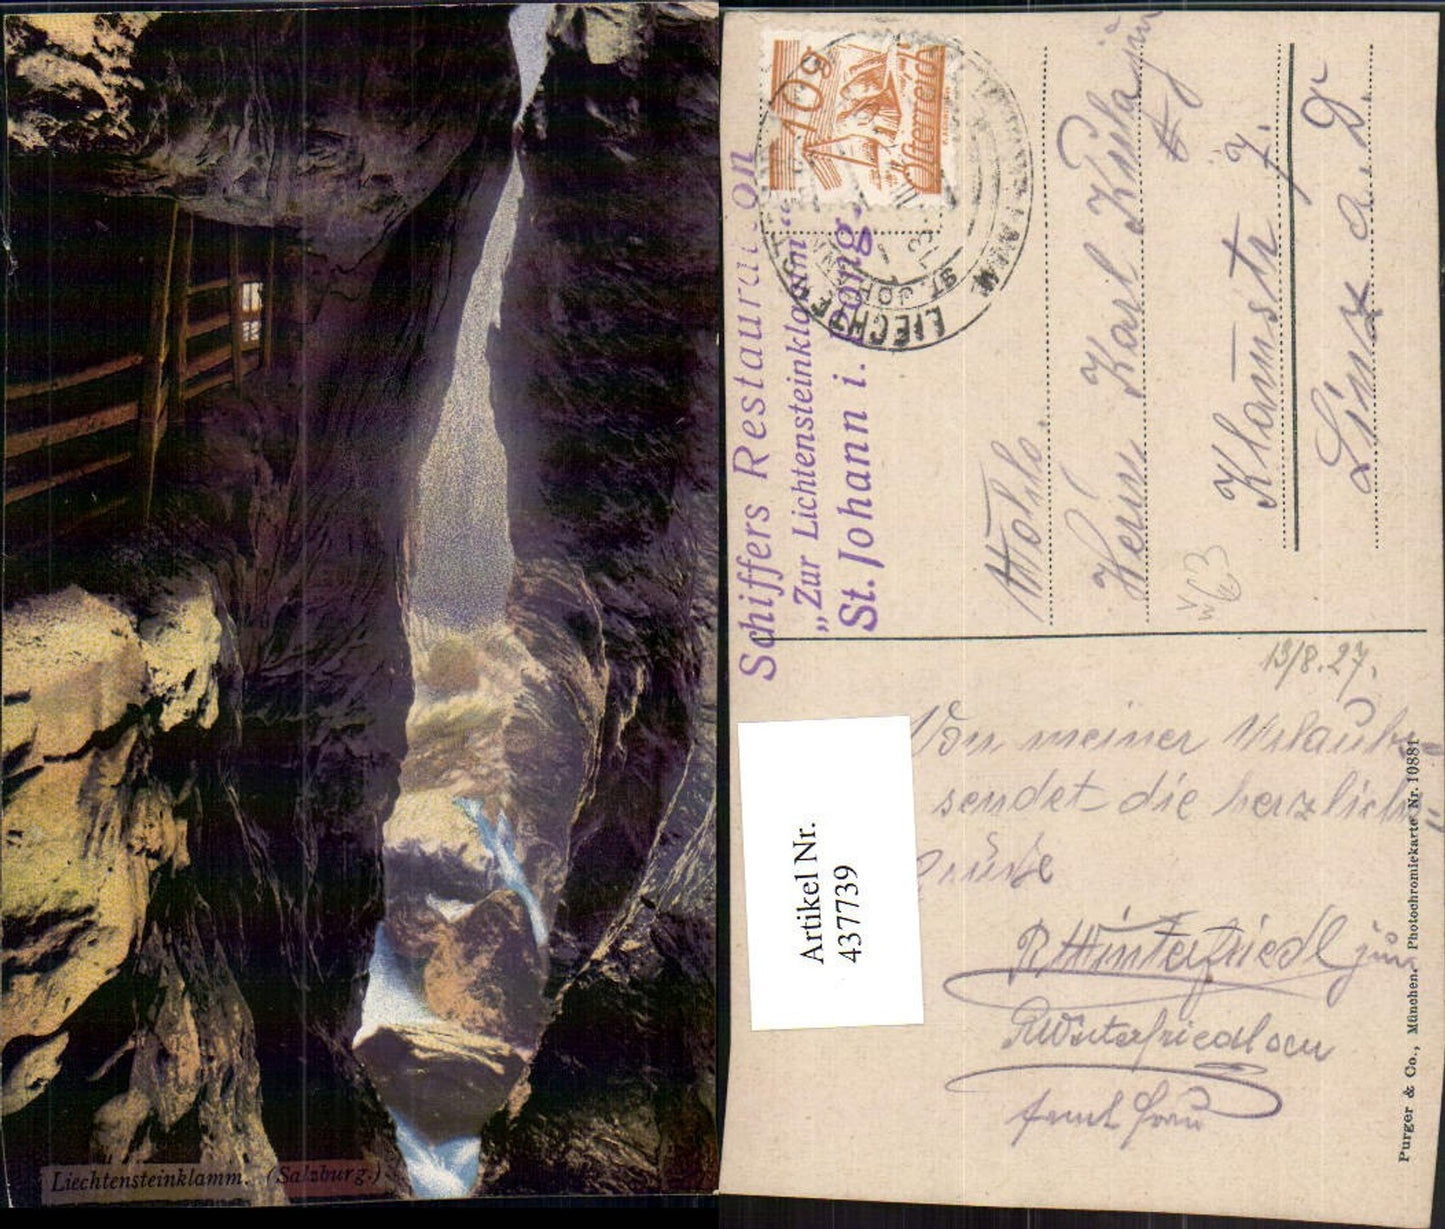 Liechtensteinklamm. (Salzburg.)
Schiffers Restauration
„Zur Lichtensteinklamm“
St. Johann i. Pong.
10 g
Österreich
LIECHTENSTEINKLAMM
ST. JOHANN
Wohlg.
Herrn Karl
Klamstr 7.
Linz a. D.
13/8.27.
Von meiner Urlaubs
sendet die herzlich
Grüße
R Winterfriedl jun
R Winterfriedl sen
samt Frau
Artikel Nr.
437739
Purger & Co., München. Photochromiekarte Nr. 10881